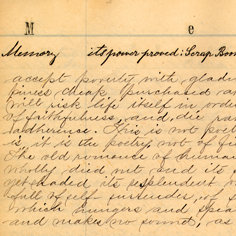 M e
Memory its power proved: Scrap Bon
accept poverty with glad
fines cheap purchased an
will risk life itself in order
of faithfulness, and die ra
adherence. This is not poet
is, it is the poetry, not of fi
the old romance of human
wholly died out and its
yet shaded its resplendent
full of self surrender, of
which hungers and
and makes no sound, as